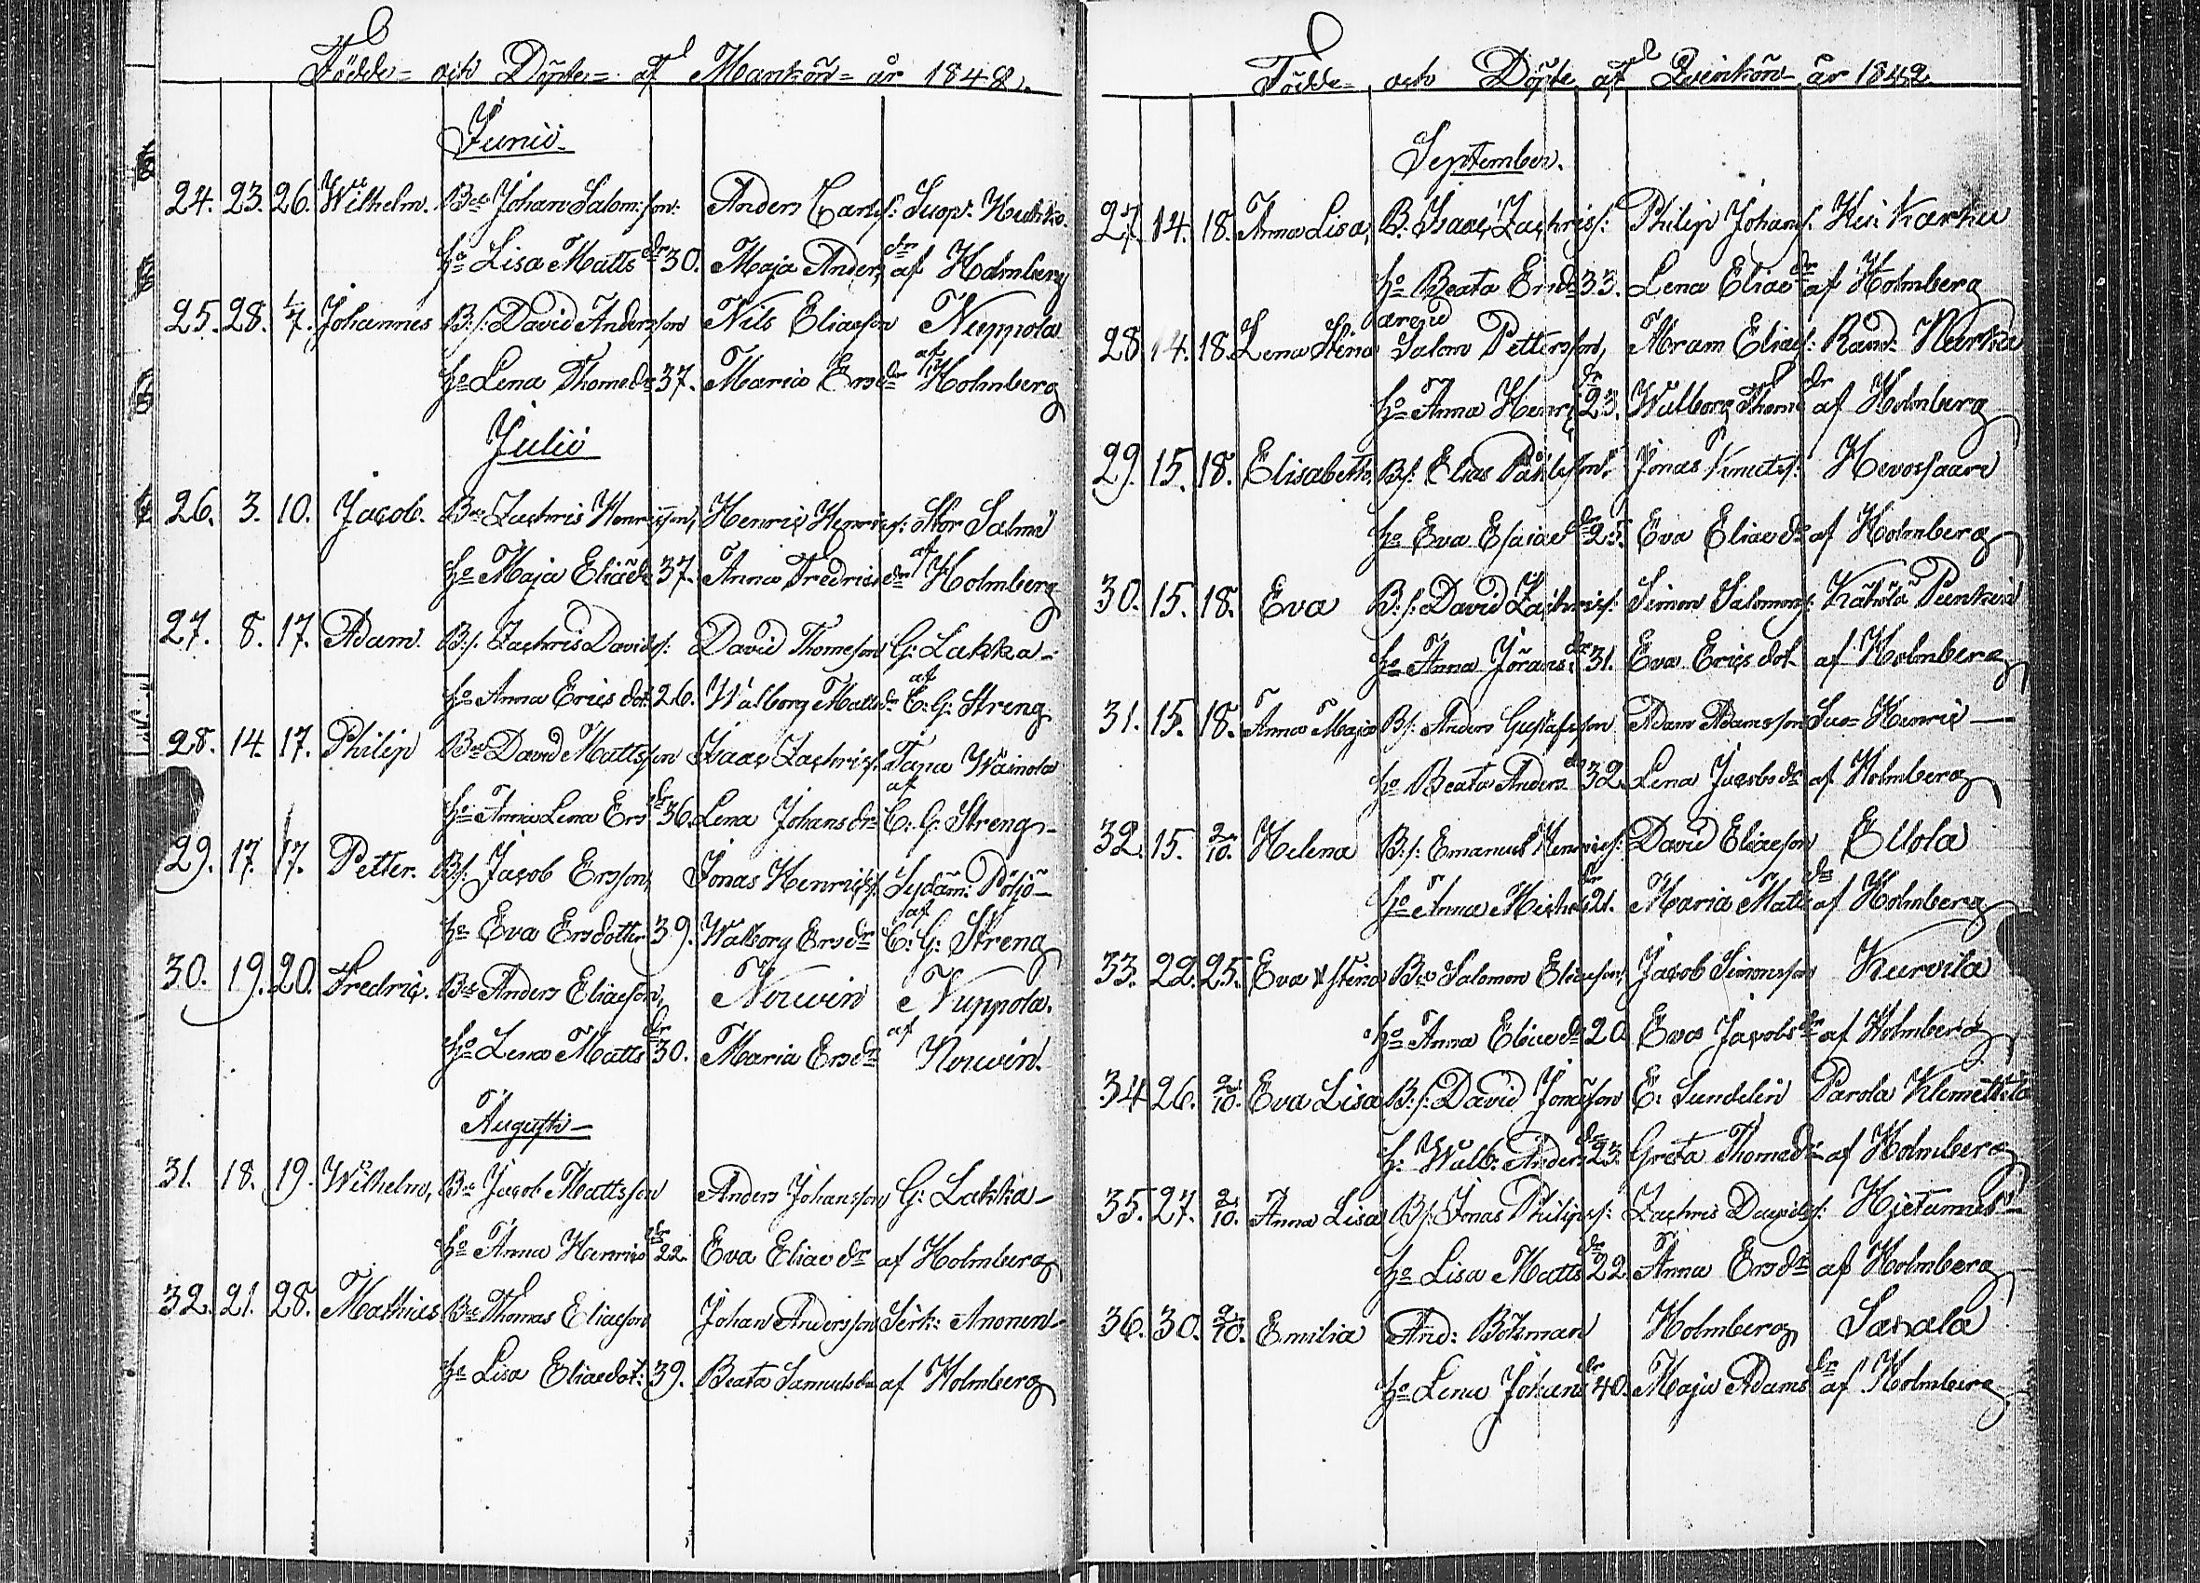 Födde- och Döpte- af Mankön- år 1842.
Junii
24. 23. 26. Wilhelm. Bde Johan Salom:son Anders Carls: Suop. Kukko.
ho Lisa Mattsdr 30. Maja Andersdr af Holmberg
25. 28. 1/7. Johannes B:s: David Andersson Nils Eliasson Nuppola
ho Lena Thomedr 37. Maria Ersdr af Holmberg
Julii
26. 3. 10. Jacob. Bde Zachris Henricsson, Henric Henrics: Stor Salmi
ho Maja Eliædr 37. Anna Fredricsdr af Holmberg
27. 8. 17. Adam. B:s: Zachris Davids: David Thomeson G: Lakka
ho Anna Erics dot: 26. Walborg Mattsdr af C: G: Streng
28. 14. 17. Philip Bde David Mattsson Isaac Zachriss. Tapa Wainola
ho Anna Lena Ersdr 36. Lena Johansdr af C: G: Streng
29. 17. 17. Petter. B:s: Jacob Ersson, Jonas Henrics: Sydäm:
ho Eva Ersdotter 39. Walborg Ersdr af C: G: Streng
30. 19. 20. Fredric. Bde Anders Eliæson, Norwin Nuppola.
ho Lena Mattsdr 30. Maria Ersdr af Norwin.
Augusti
31. 18. 19. Wilhelm, Bde Jacob Mattsson Anders Johansson G: Lakka
ho Anna Henricsdr 22. Eva Eliædr af Holmberg
32. 21. 28. Mathias Bde Thomas Eliæson Johan Andersson Sirk: Anonen
ho Lisa Eliædot: 39. Beata Samuelsdr af Holmberg
Födde- och Döpte af Qvinkön år 1842.
September.
27. 14. 18. Anna Lisa, B: Isaac Zachriss: Philip Johans: Karhu
ho Beata Ersdr 33. Lena Eliædr af Holmberg
28 14. 18. Lena Stina Salom Pettersson, Abram Elias: Rand: Karhu
ho Anna Henricsdr 23. Walborg Thomedr af Holmberg
29. 15. 18. Elisabeth, B:s: Elias Påhlsson, Jonas Knuts: Hevossaari
ho Eva Esaiædr 25. Eva Eliædr af Holmberg
30. 15. 18. Eva B:s: David Zachriss: Simon Salomons:
ho Anna Jöransdr 31. Eva Erics dot. af Holmberg
31. 15. 18. Anna Maja B:s: Anders Gustafsson Adam Adamsson Suo- Henric
ho Beata Andersdr 32. Lena Jacobsdr af Holmberg
32. 15. 2/10. Helena B:s: Emanuel Henrics: David Eliæson Ellola
ho Anna Michelsdr 21. Maria Mattsdr af Holmberg
33. 22. 25. Eva Stina Bde Salomon Eliæson, Jacob Simonsson Kurvila
ho Anna Eliædr 20. Eva Jacobsdr af Holmberg
34 26. 2/10. Eva Lisa B:s: David Jonæson E: Sundelin Parola Klemettilä
h: Walb: Andersdr 23. Greta Thomedr af Holmberg
35. 27. 2/10. Anna Lisa B:s: Jonas Philips: Zachris Davids: Hjetaniemi
ho Lisa Mattsdr 22. Anna Ersdr af Holmberg
36. 30. 2/10. Emilia And: Botsman Holmberg Saxala
ho Lena Johansdr 40. Maja Adamsdr af Holmberg